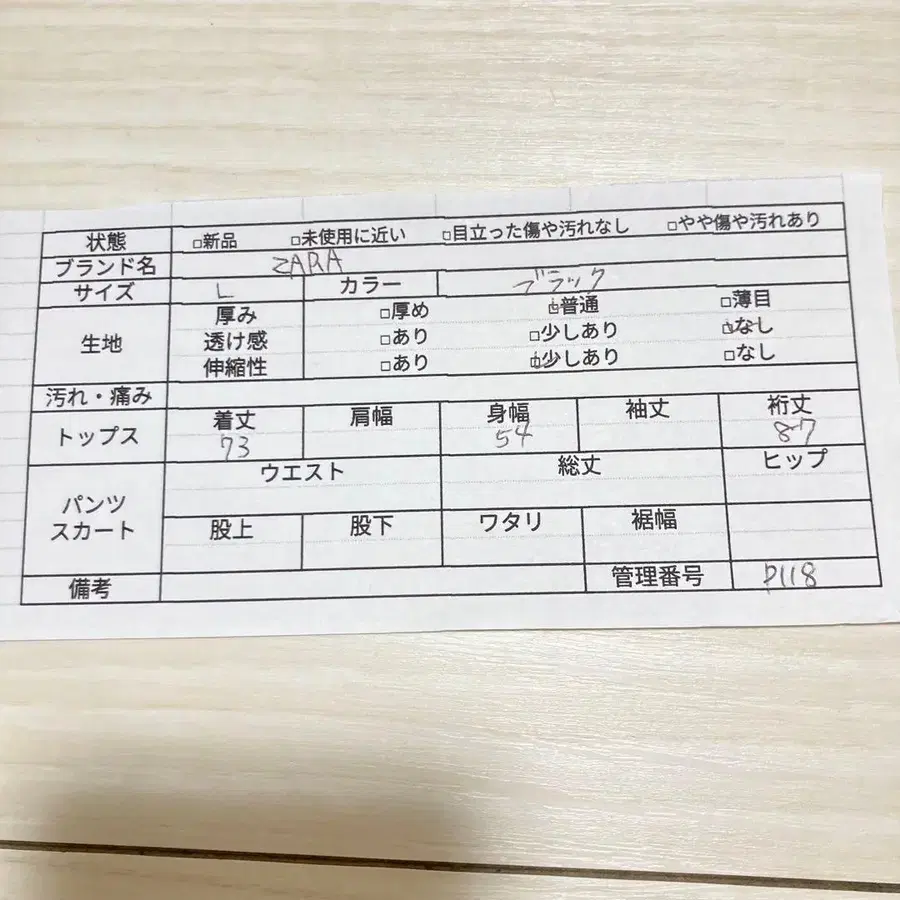 状態 □新品 □未使用に近い □目立った傷や汚れなし □やや傷や汚れあり
ブランド名 ZARA
サイズ L カラー ブラック
生地 厚み □厚め □普通 □薄目
透け感 □あり □少しあり □なし
伸縮性 □あり □少しあり □なし
汚れ・痛み
トップス 着丈 肩幅 身幅 袖丈 裄丈
73 54 87
パンツ スカート ウエスト 総丈 ヒップ
股上 股下 ワタリ 裾幅
備考 管理番号 P118